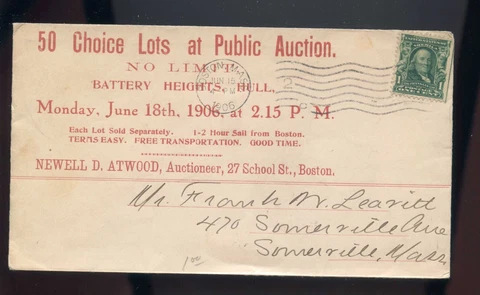 50 Choice Lots at Public Auction.
NO LIMIT
BATTERY HEIGHTS, HULL,
Monday, June 18th, 1906, at 2.15 P. M.
Each Lot Sold Separately. 1-2 Hour Sail from Boston.
TERMS EASY. FREE TRANSPORTATION. GOOD TIME.
NEWELL D. ATWOOD, Auctioneer, 27 School St., Boston.
BOSTON, MASS.
JUN 15
PM
1906
2
Mr. Frank W. Leavitt
470 Somerville Ave
Somerville, Mass.